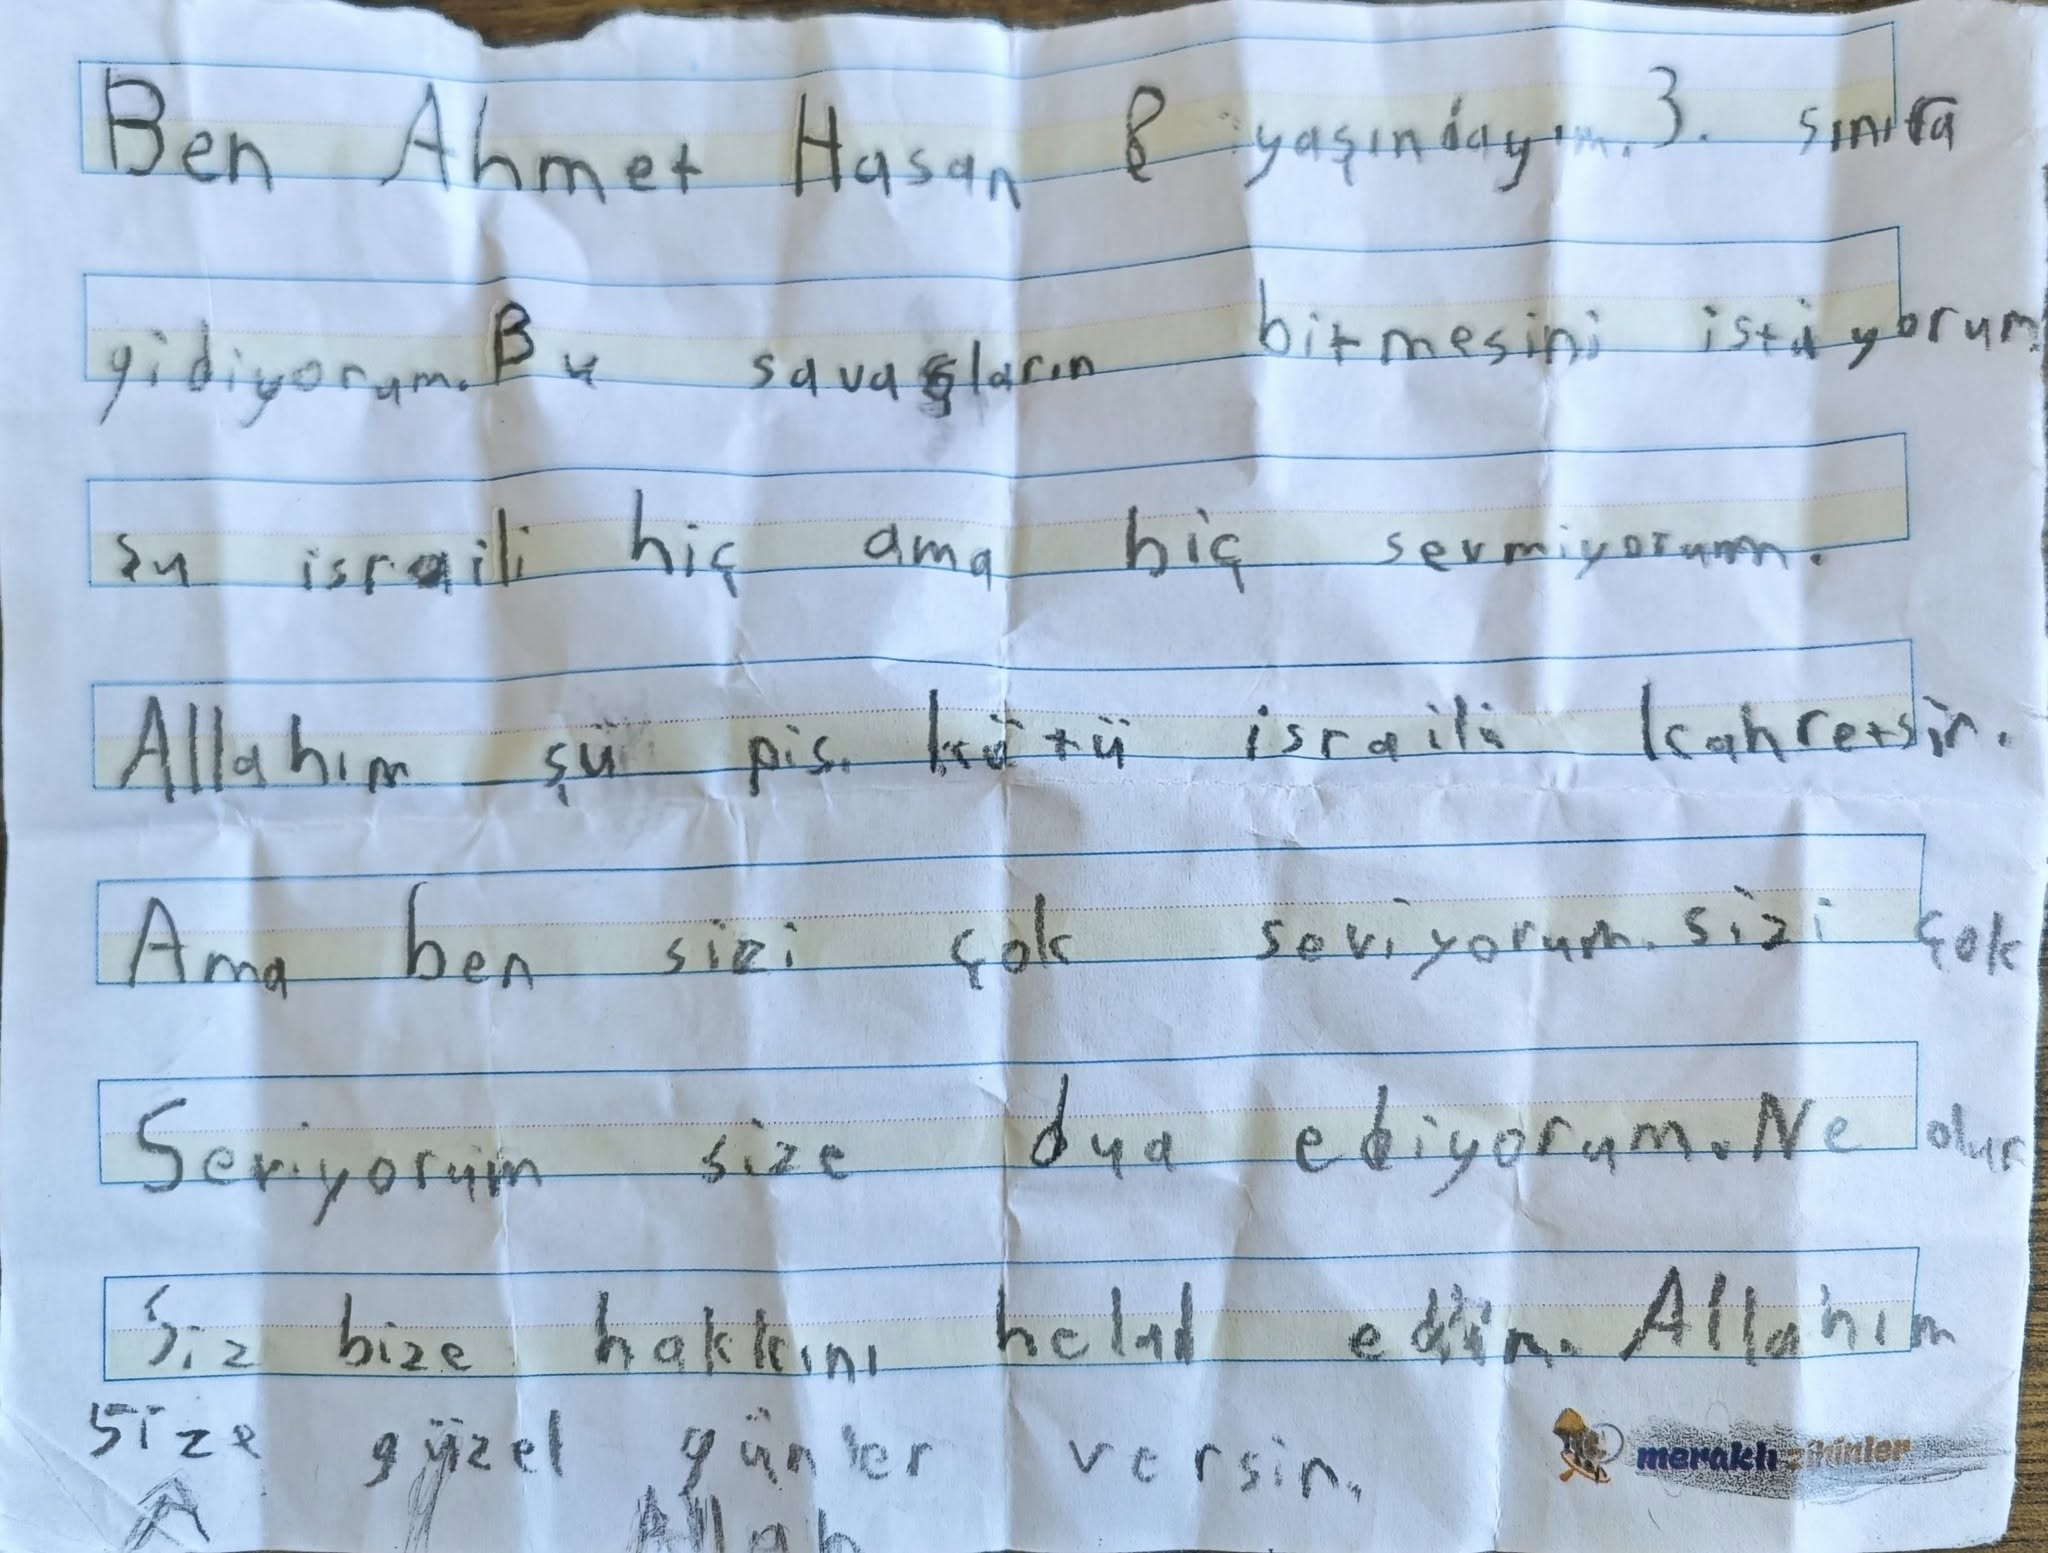 Ben Ahmet Hasan 8 yaşındayım. 3. sınıfa
gidiyorum. Bu savaşların bitmesini istiyorum
su israili hiç ama hiç sevmiyorum.
Allahım şü pis. kötü israili kahretsin.
Ama ben sizi çok seviyorum. sizi çok
Seviyorum size dua ediyorum. Ne olur
Siz bize hakkını helal edin. Allahım
size güzel günler versin.
meraklı zihinler
A Allah